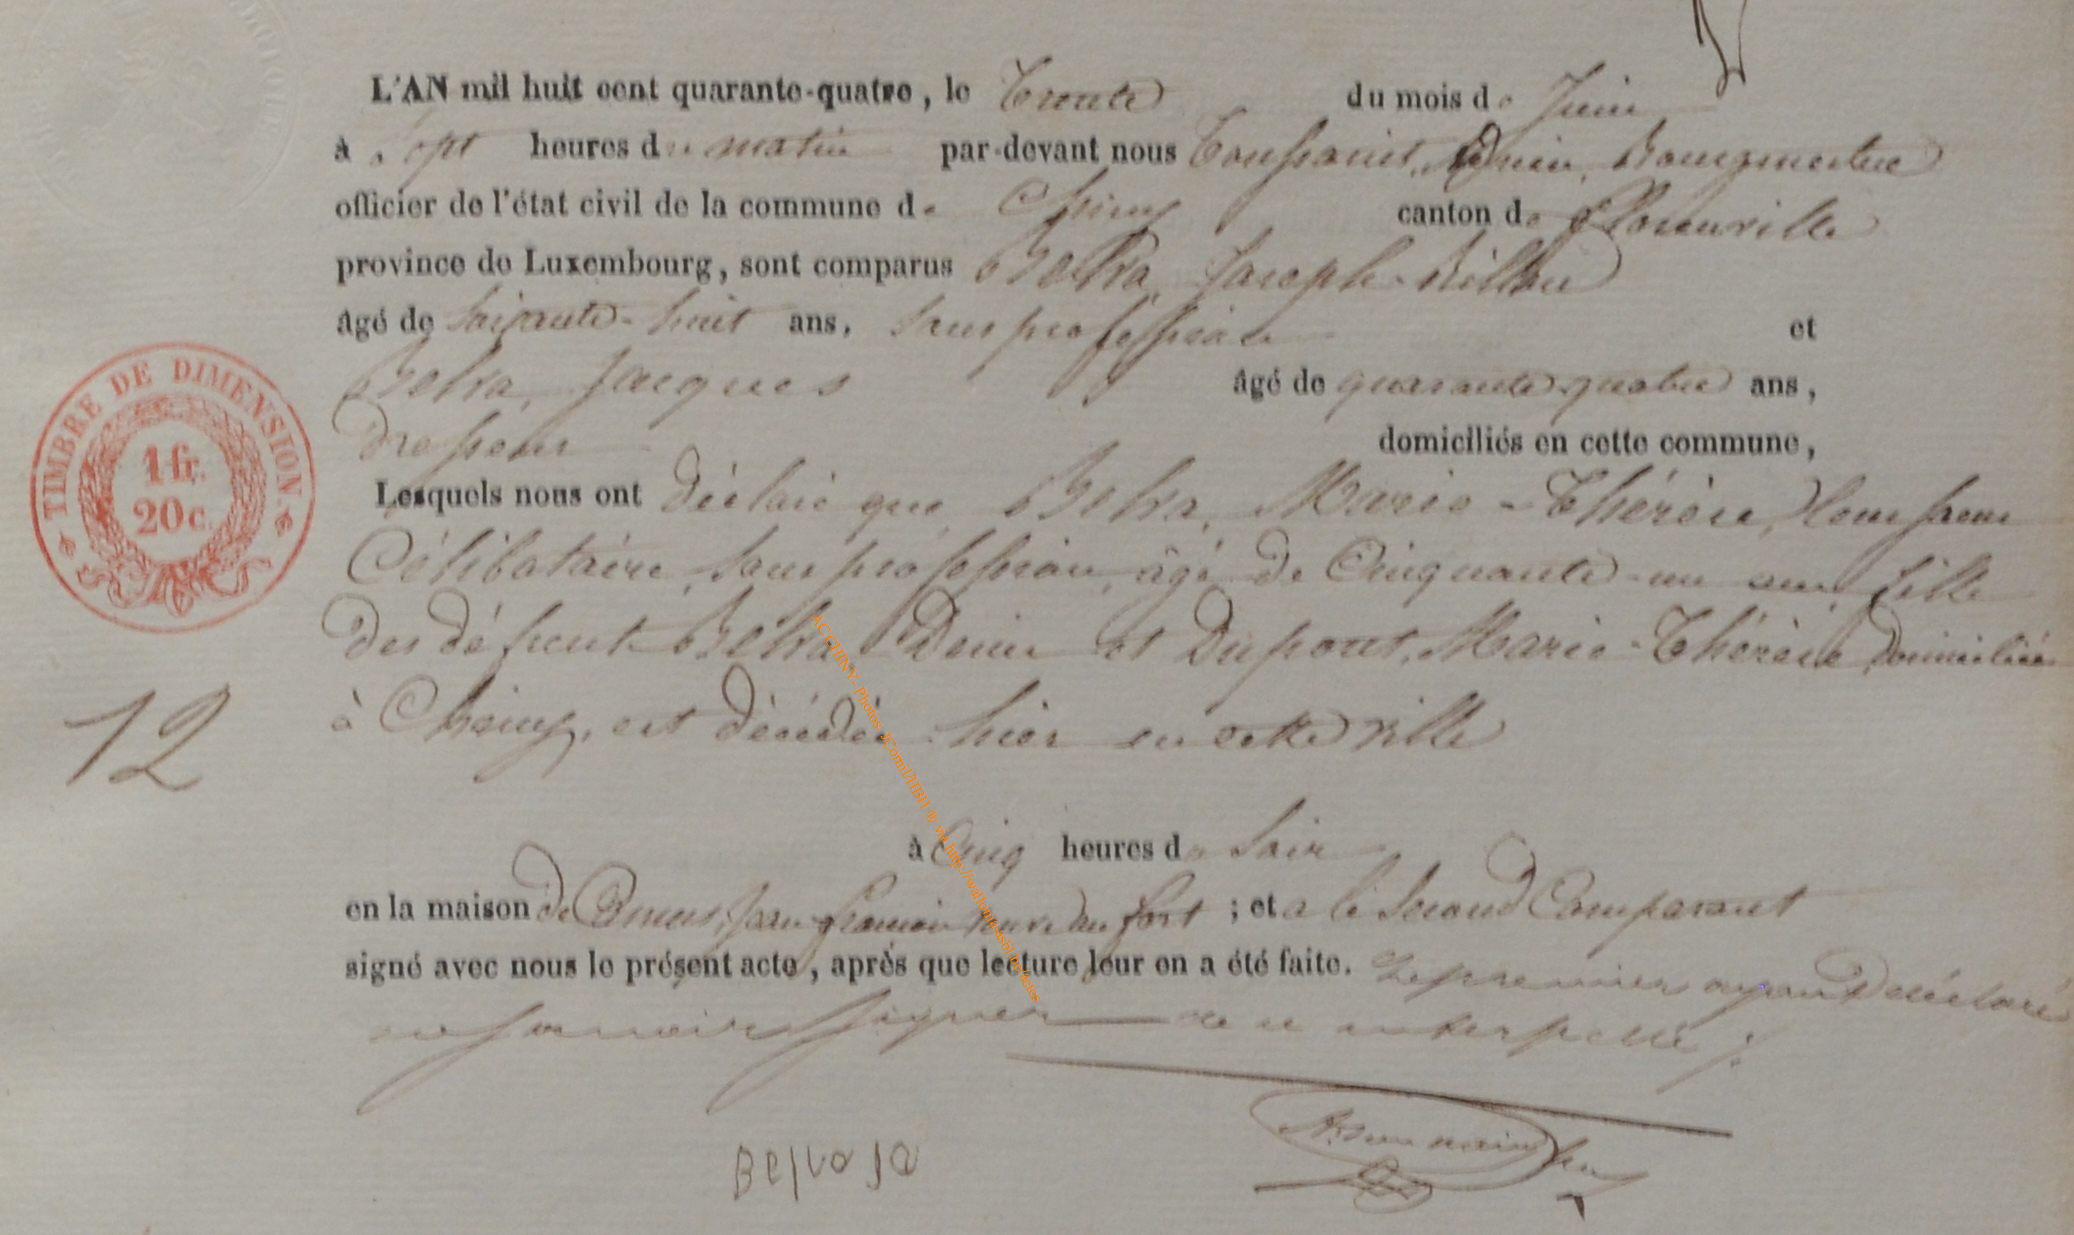 L'AN mil huit cent quarante-quatre, le Trente du mois de Juin
à Sept heures du matin par-devant nous Toussaint, Adrien, Bourgmestre
officier de l'état civil de la commune de Chiny canton de Florenville
province de Luxembourg, sont comparus Belva, Joseph
âgé de Soixante-huit ans, sans profession et
Belva, Jacques âgé de quarante-quatre ans,
Drapeur domiciliés en cette commune,
Lesquels nous ont déclaré que Belva, Marie-Thérèse, leur sœur
Célibataire, sans profession, âgé de Cinquante-un ans fille
des défunt Belva Denis et Dupont, Marie-Thérèse domiciliée
à Chiny, est décédée hier en cette ville
12
à Cinq heures du Soir
en la maison de Jean-François rue du fort ; et a le Second Comparant
signé avec nous le présent acte, après que lecture leur en a été faite. Le premier ayant déclaré
ne savoir signer de ce interpellé
Belva Ja
TIMBRE DE DIMENSION.
1 fr.
20 c.